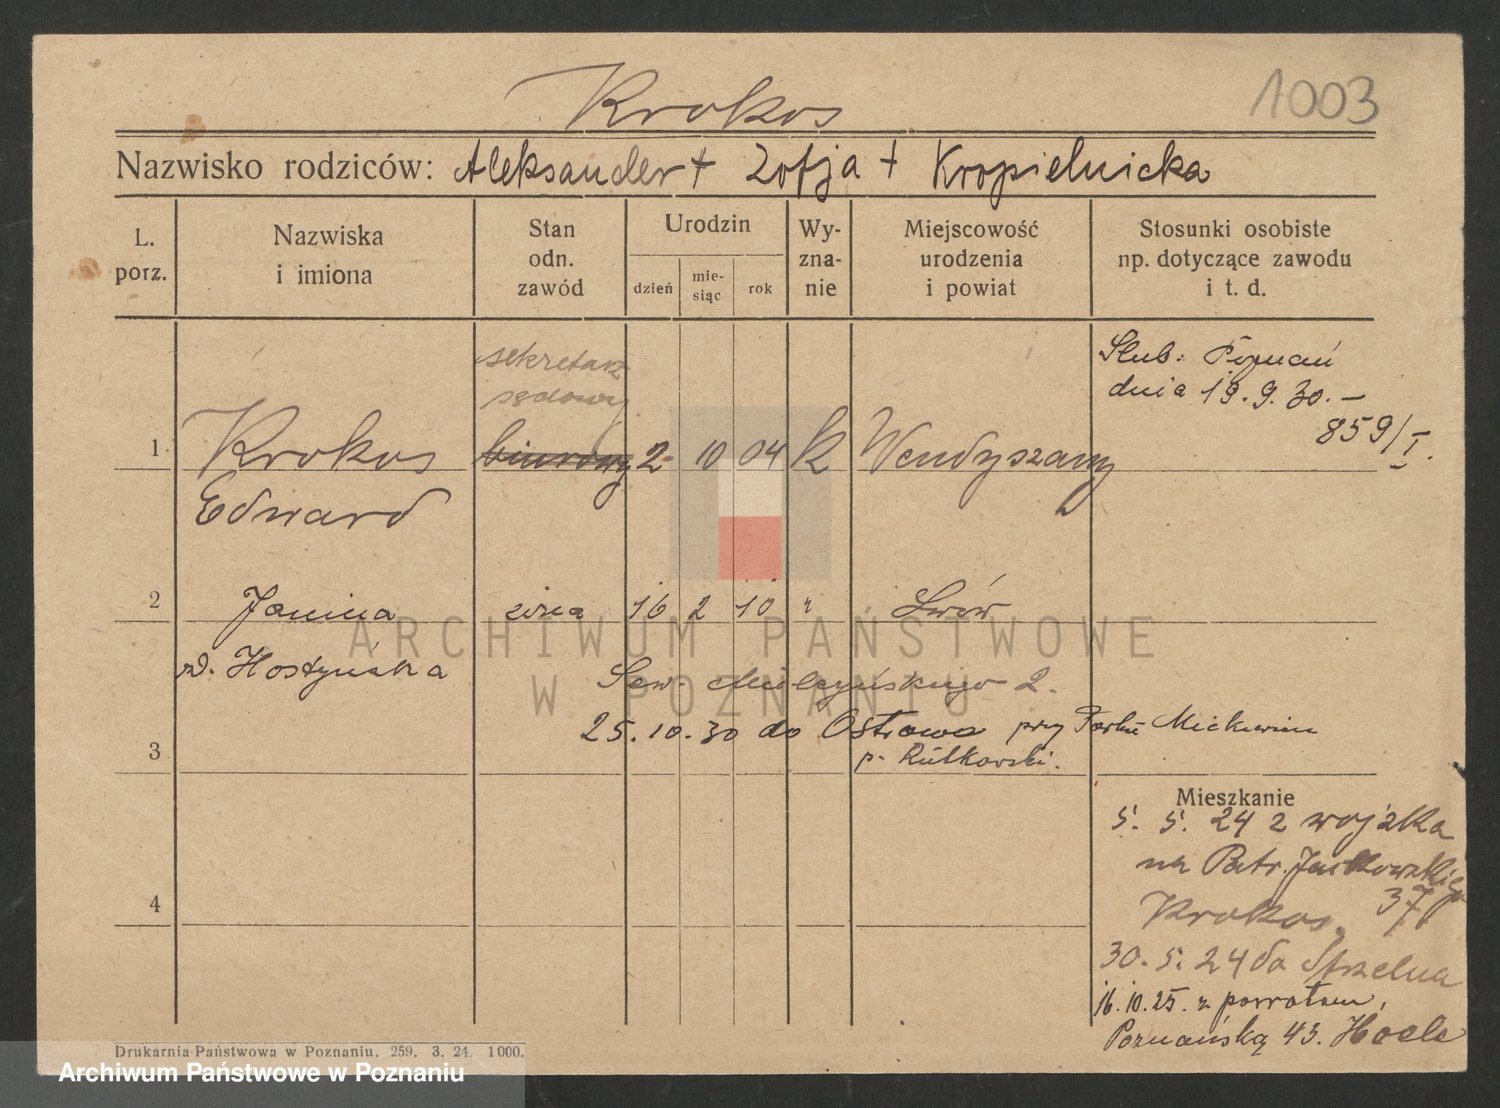 Krokos
1003
Nazwisko rodziców: Aleksander + Zofja + Kropielnicka
L. porz.
Nazwiska i imiona
Stan odn. zawód
Urodzin
dzień
mie-
siąc
rok
Wy-
zna-
nie
Miejscowość urodzenia i powiat
Stosunki osobiste np. dotyczące zawodu i t. d.
Ślub: Poznań
dnia 19.9.30.-
859/I.
sekretarz
sądowy
1 Krokos biurowy 2 10 04 k Wendyszany
Edward
2 Janina żona 16 2 10 " Lwów
zd. Hostyńska
Sew. Mielżyńskiego 2.
25.10.30 do Ostrowa przy Parku Mickiewicza
3
p. Rutkowski.
Mieszkanie
5. 5. 24 z wojska
na Patr. Jackowskiego
37
4
Krokos.
30.5.24 do Strzelna
16.10.25. z powrotem,
Poznańską 43.
Drukarnia Państwowa w Poznaniu. 259. 3. 24. 1000.
ARCHIWUM PAŃSTWOWE
W POZNANIU
Archiwum Państwowe w Poznaniu